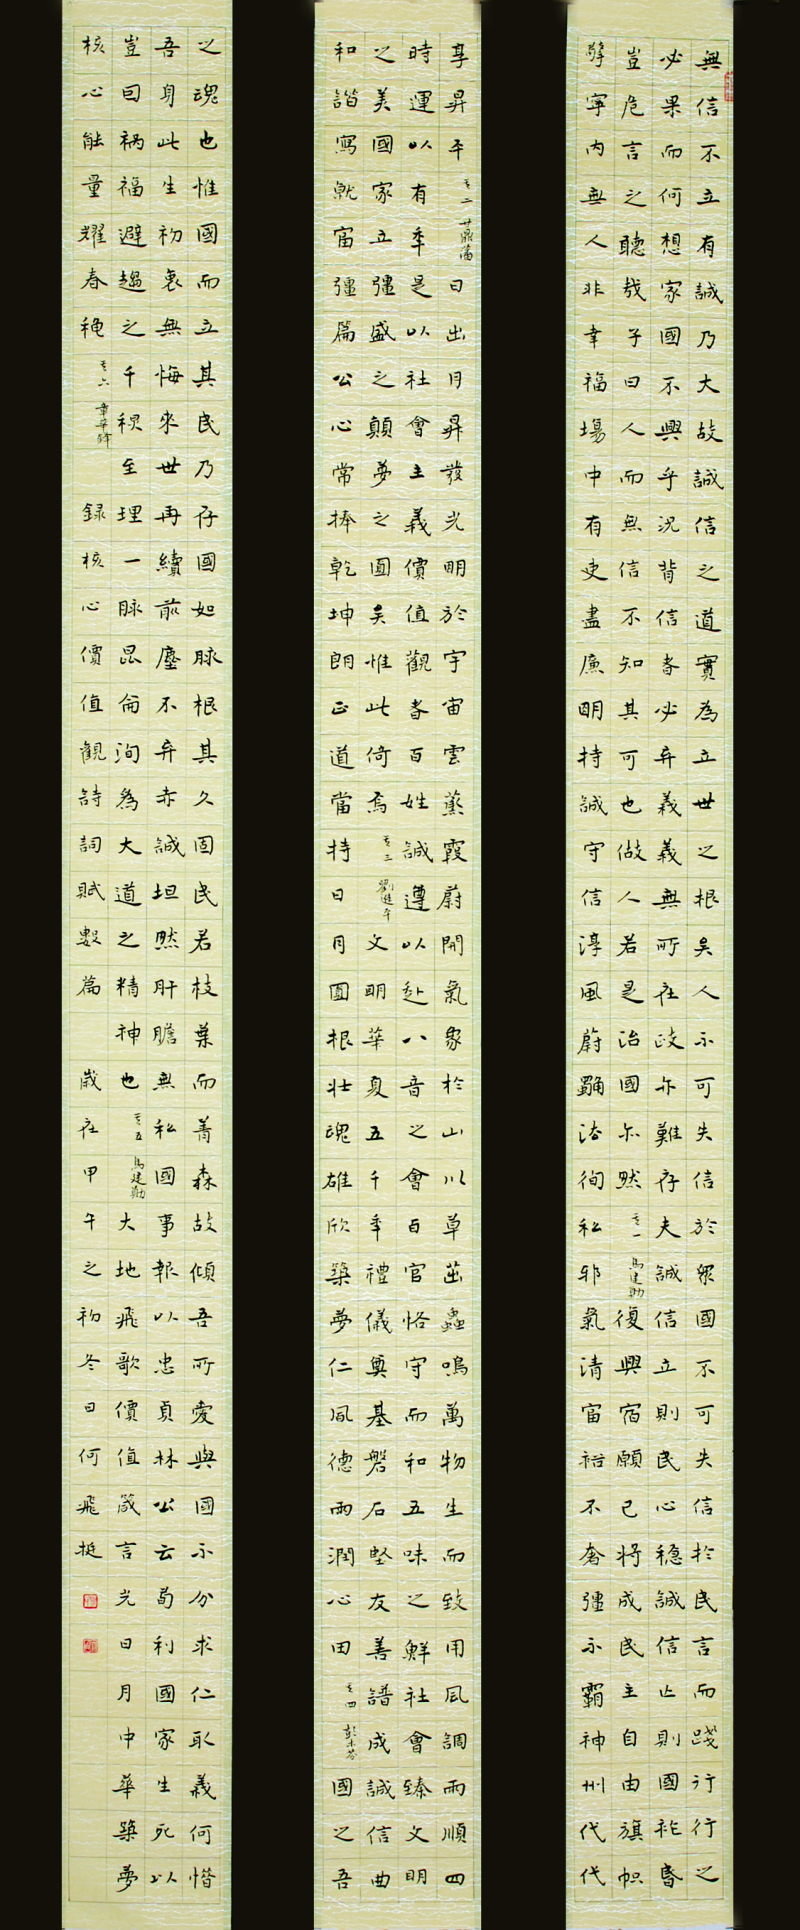 無信不立有誠乃大故誠信之道實為立世之根矣人不可失信於眾國不可失信於民言而踐行行之
必果而何想家國不興乎況背信者必弃義義無所在政亦難存夫誠信立則民心穩誠信亡則國祚昏
豈危言之聽哉子曰人而無信不知其可也做人若是治國亦然 其一 馬建勛 復興宿願已將成民主自由旗幟
擎寧內無人非幸福場中有吏盡廉明持誠守信淳風蔚蠲法徇私邪氣清富裕不奢彊不霸神州代代
享昇平 其二 廿鼎藩 日出月昇發光明於宇宙雲蒸霞蔚開氣象於山川草茁蟲鳴萬物生而致用風調雨順四
時運以有年是以社會主義價值觀者百姓誠遵以赴八音之會百官恪守而和五味之鮮社會臻文明
之美國家立彊盛之顛夢之圓矣惟此倚焉 其三 劉進平 文明華夏五千年禮儀奠基磐石堅友善譜成誠信曲
和諧寫就富彊篇公心常捧乾坤朗正道當持日月圓根壯魂雄欣築夢仁風德雨潤心田 其四 彭未若 國之吾
之魂也惟國而立其民乃存國如脉根其久固民若枝葉而菁森故傾吾所愛與國不分求仁取義何惜
吾身此生初衷無悔來世再續前塵不弃赤誠坦然肝膽無私國事報以忠貞林公云苟利國家生死以
豈曰禍福避趨之千稘至理一脉昆侖洵為大道之精神也 其五 馬建勛 大地飛歌價值箴言光日月中華築夢
核心能量耀春穐 其六 章華鋒 録核心價值觀詩詞賦數篇 歲在甲午之初冬日何飛挺